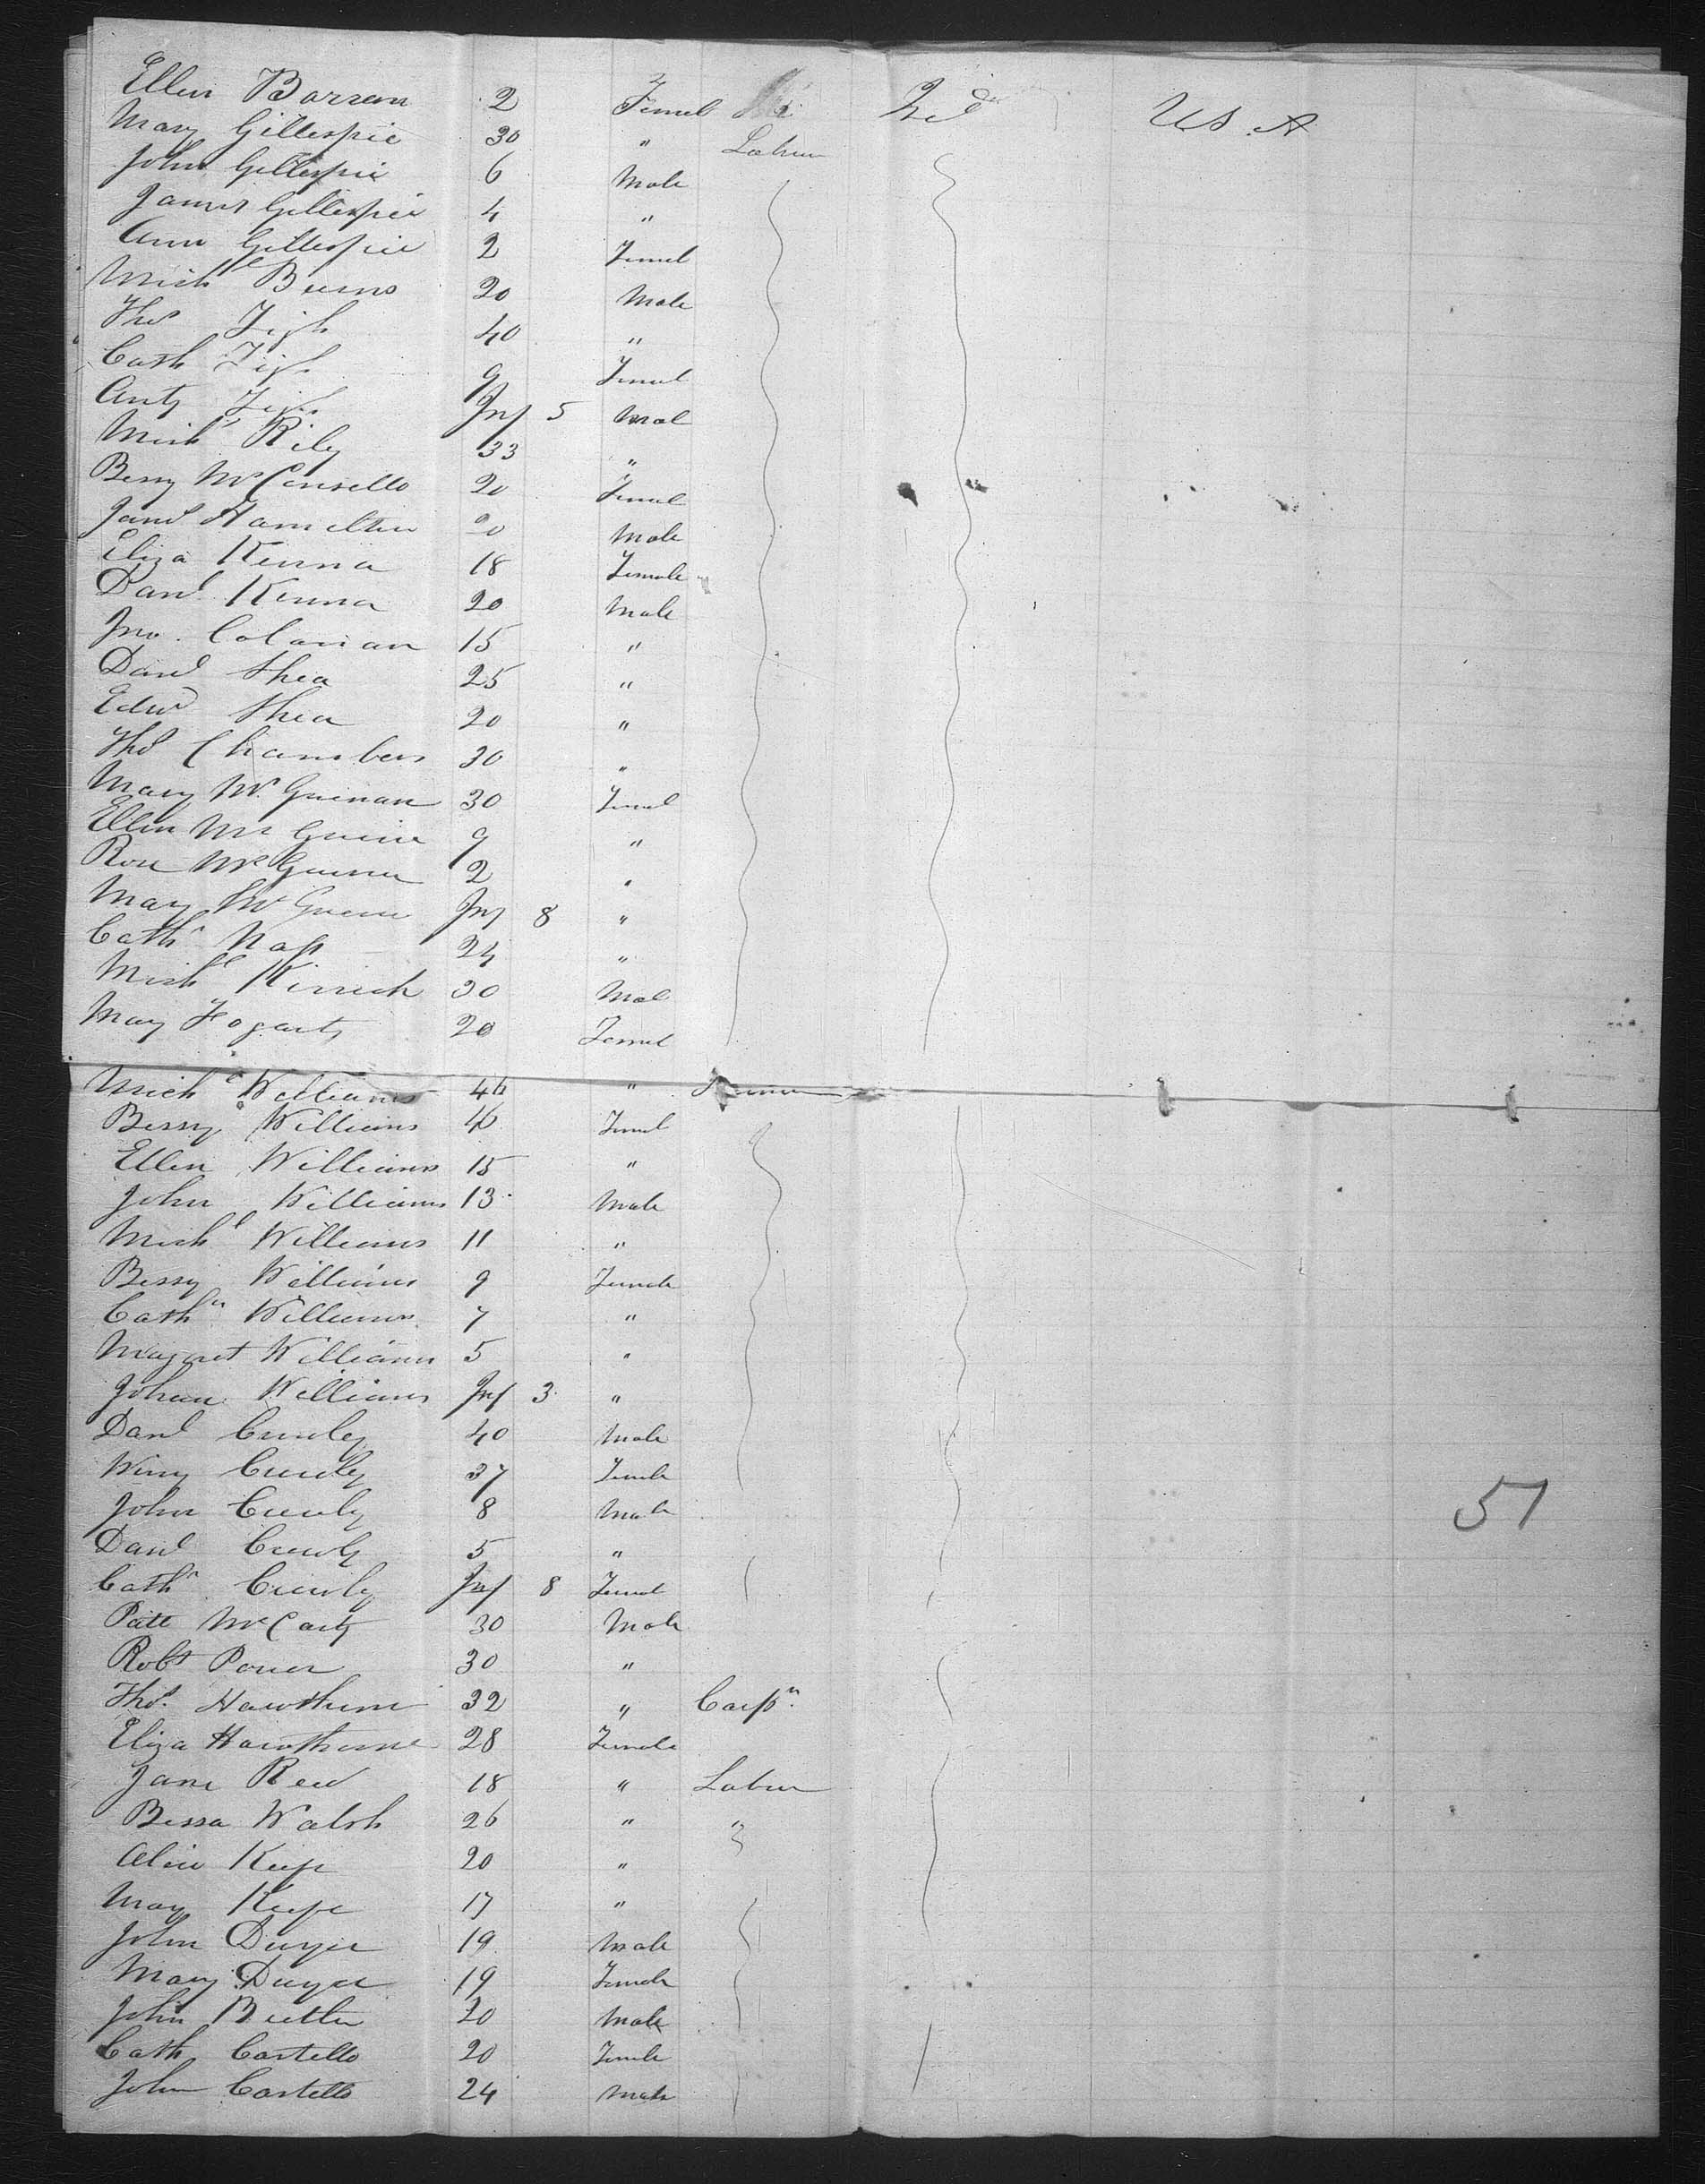 Ellen Barran 2 Femal Irel'd U.S.A
Mary Gillespie 30 " Labur
John Gillespie 6 Male
James Gillespie 4 "
Ann Gillespie 2 Femal
Mich'l Burns 20 Male
Tho's Figh 40 "
Cath Figh 9 Femal
Ant'y Figh Inf 5 Mal
Mich'l Rily 33 "
Bessy McConsello 20 Femal
Jam's Hamilton 20 Male
Eliza Kenna 18 Female
Dan'l Kenna 20 Male
Jno. Colaman 15 "
Dan'l Shea 25 "
Edw'd Shea 20 "
Tho's Chambers 30 "
Mary Mc 30 Femal
Ellen Mc 9 "
Rose Mc 2 "
Mary Mc Inf 8 "
Cath'n Nass 24 "
Mich'l 30 Mal
Mary Fogarty 20 Femal
Mich'l Williams 46 "
Bessy Williams 46 Femal
Ellen Williams 15 "
John Williams 13 Male
Mich'l Williams 11 "
Bessy Williams 9 Female
Cath'n Williams 7 "
Magaret Williams 5 "
Johan Williams Inf 3 "
Dan'l Crowley 40 Male
Winy Crowly 37 Female
John Crowly 8 Male
Dan'l Crowly 5 "
Cath'n Crowly Inf 8 Femal
Patt McCarty 30 Male
Rob't Power 30 "
Tho's Hawthorne 32 " Carp'n
Eliza Hawthorne 28 Female
Jane Reed 18 " Labur
Bessa Walsh 26 " "
Alice Keefe 20 "
Mary Keefe 17 "
John Dwyer 19 Male
Mary Dwyer 19 Female
John Butler 20 Male
Cath Costello 20 Female
John Costello 24 Male
51